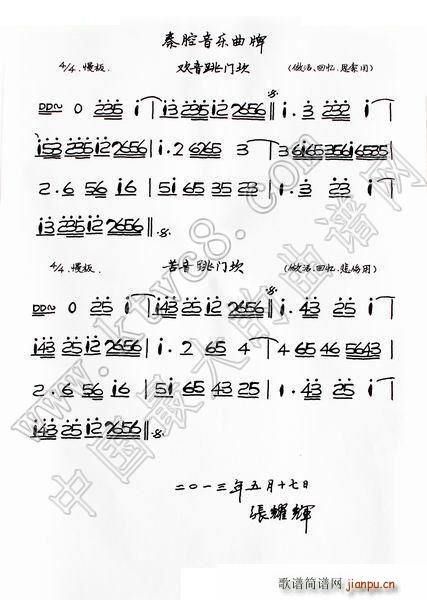 秦腔音乐曲牌
4/4.慢板. 欢音跳门坎 (做活、回忆、思索用)
DD~ 0 235 i | i3 235 i2 2656 :‖ i . 3 232 i |
i53 235 i2 2656 | i . 2 6265 3 | 3 6i65 356i 6535 |
2 . 6 56 i6 | 5i 65 35 23 | i . 3 23 i |
i3 235 i2 2656 ‖
4/4.慢板. 苦音跳门坎 (做活、回忆、悲伤用)
DD~ 0 25 i | i43 25 i2 2656 ‖ i . 43 25 i |
i43 25 i2 2656 | i . 2 65 4 | 4 65 46 5643 |
2 . 6 56 i6 | 5i 65 43 25 | i . 43 25 i |
i43 25 i2 2656 ‖
二〇一三年五月十七日
張耀輝
www.ktvc8.com
中国最大的曲谱网
歌谱简谱网
jianpu.cn